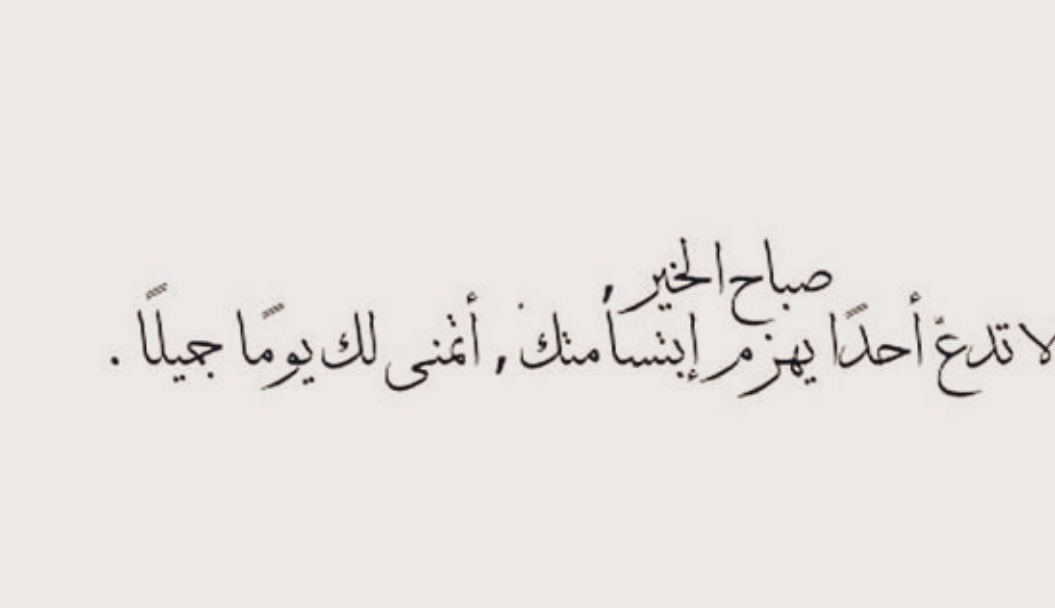 صباح الخير ,
لا تدعّ أحدًا يهزم إبتسامتك , أتمنى لك يومًا جميلًا .